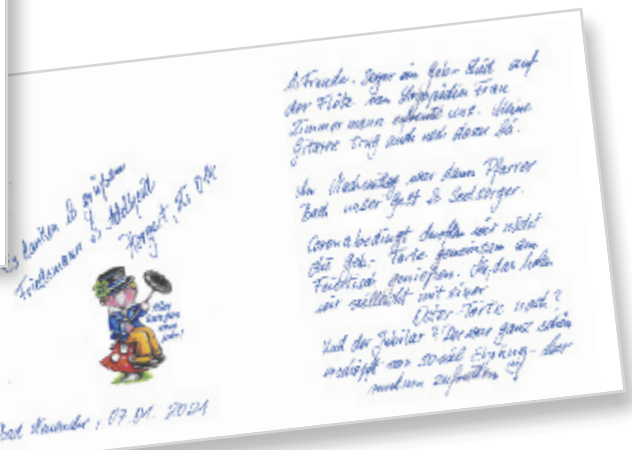 danken & grüßen
Friedemann & Adelheid
& Freude. Sogar ein Geb-Ständ. auf
der Flöte von Frau
Zimmermann erfreute uns. Meine
Gitarre trug auch noch dazu bei.
Am Nachmittag war dann Pfarrer
Bach unser Gast & Seelsorger.
Coronabedingt durften wir nicht
die Geb-Torte gemeinsam am
Feiertisch genießen. Na, das holen
wir vielleicht mit einer
Oster-Torte nach?
Und der Jubilar? Der war ganz schön
erschöpft von so viel Ehrung - aber
rundum zufrieden
Bad Neuenahr, 07.01.2021